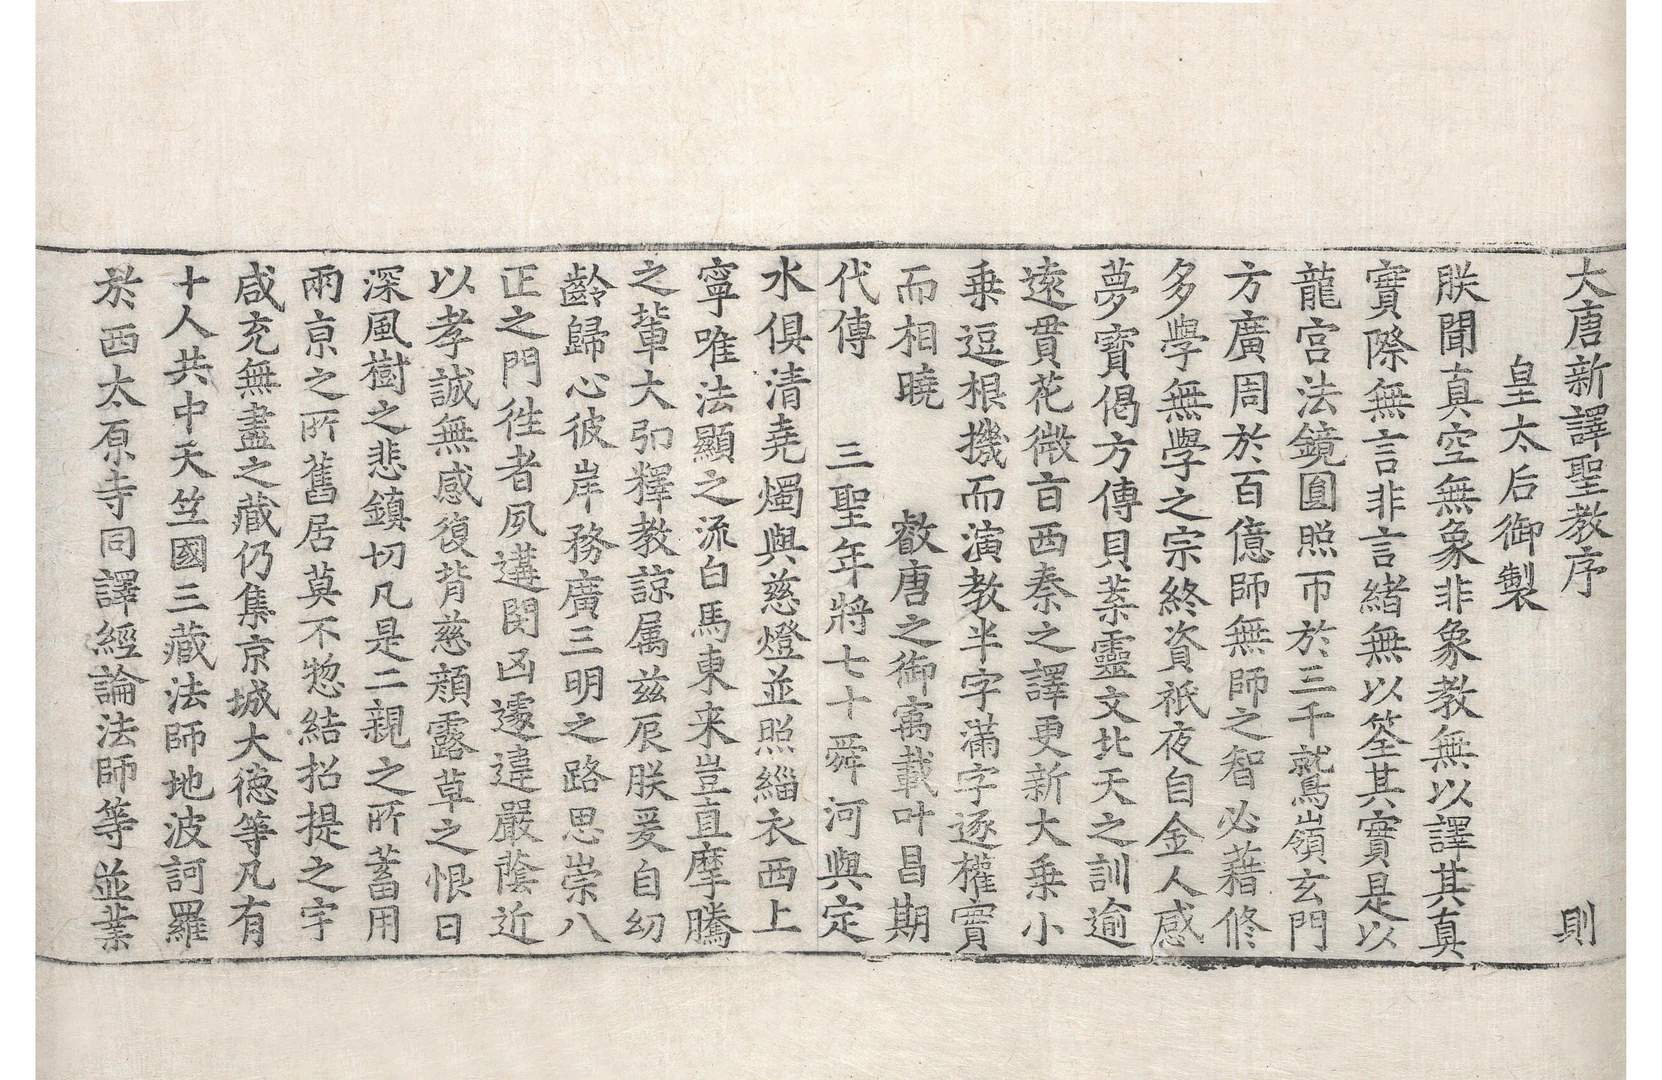 大唐新譯聖教序　則
皇太后御製
朕聞真空無象非象教無以譯其真
實際無言非言緒無以筌其實是以
龍宮法鏡圓照帀於三千鷲嶺玄門
方廣周於百億師無師之智必藉修
多學無學之宗終資祇夜自金人感
夢寶偈方傳貝葉靈文北天之訓逾
遠貫花微言西秦之譯更新大乗小
乗逗根機而演教半字滿字逐權實
而相曉　叡唐之御寓載叶昌期
代傳　三聖年將七十舜河與定
水俱清堯燭與慈燈並照緇衣西上
寧唯法顯之流白馬東来豈直摩騰
之輩大弘釋教諒属兹辰朕爰自幼
齡歸心彼岸務廣三明之路思崇八
正之門徃者夙遘閔凶遽違嚴蔭近
以孝誠無感復背慈顔露草之恨日
深風樹之悲鎮切凡是二親之所蓄用
兩京之所舊居莫不惣結招提之宇
咸充無盡之藏仍集京城大德等凡有
十人共中天竺國三藏法師地波訶羅
於西太原寺同譯經論法師等並業